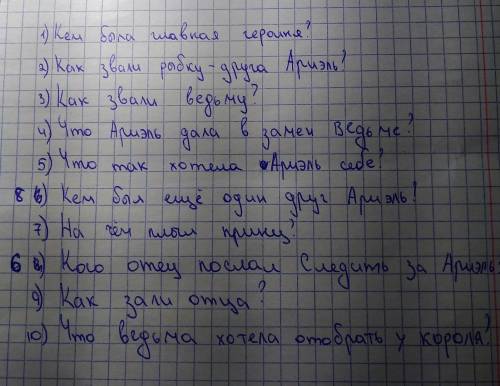 1) Кем была главная героиня?
2) Как звали рыбку-друга Ариэль?
3) Как звали ведьму?
4) Что Ариэль дала в замен Ведьме?
5) Что так хотела Ариэль себе?
8 6) Кем был ещё один друг Ариэль?
7) На чём плыл принц?
6 8) Кого отец послал Следить за Ариэль
9) Как зали отца?
10) Что ведьма хотела отобрать у корола?